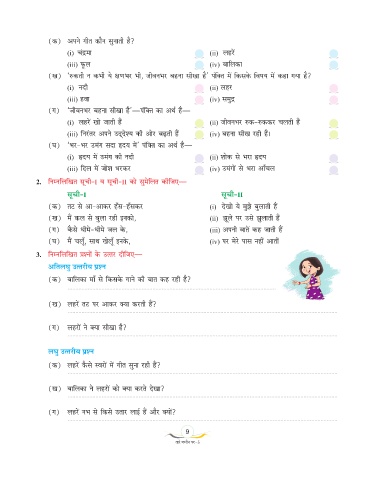 (क) अपने गीत कौन सुनाती है?
(i) चंद्रमा (ii) लहरें
(iii) फूल (iv) बालिका
(ख) 'रुकती न कभी ये क्षणभर भी, जीवनभर बहना सीखा है' पंक्ति में किसके विषय में कहा गया है?
(i) नदी (ii) लहर
(iii) हवा (iv) समुद्र
(ग) 'जीवनभर बहना सीखा है'—पंक्ति का अर्थ है—
(i) लहरें खो जाती हैं (ii) जीवनभर रुक-रुककर चलती हैं
(iii) निरंतर अपने उद्देश्य की ओर बढ़ती हैं (iv) बहना सीख रही हैं।
(घ) 'भर-भर उमंग सदा हृदय में' पंक्ति का अर्थ है—
(i) हृदय में उमंग की नदी (ii) शोक से भरा हृदय
(iii) दिल में जोश भरकर (iv) उमंगों से भरा आँचल
2. निम्नलिखित सूची-I व सूची-II को सुमेलित कीजिए—
सूची-I सूची-II
(क) तट से आ-आकर हँस-हँसकर (i) देखो ये मुझे बुलाती हैं
(ख) मैं कल से बुला रही इनको, (ii) झूले पर उसे झुलाती हैं
(ग) कैसे धीमे-धीमे जल के, (iii) अपनी बातें कह जाती हैं
(घ) मैं चलूँ, साथ खेलूँ इनके, (iv) पर मेरे पास नहीं आतीं
3. निम्नलिखित प्रश्नों के उत्तर दीजिए—
अतिलघु उत्तरीय प्रश्न
(क) बालिका माँ से किसके गाने की बात कह रही है?
(ख) लहरें तट पर आकर क्या करती हैं?
(ग) लहरों ने क्या सीखा है?
लघु उत्तरीय प्रश्न
(क) लहरें कैसे स्वरों में गीत सुना रही हैं?
(ख) बालिका ने लहरों को क्या करते देखा?
(ग) लहरें नभ से किसे उतार लाई हैं और क्यों?
9